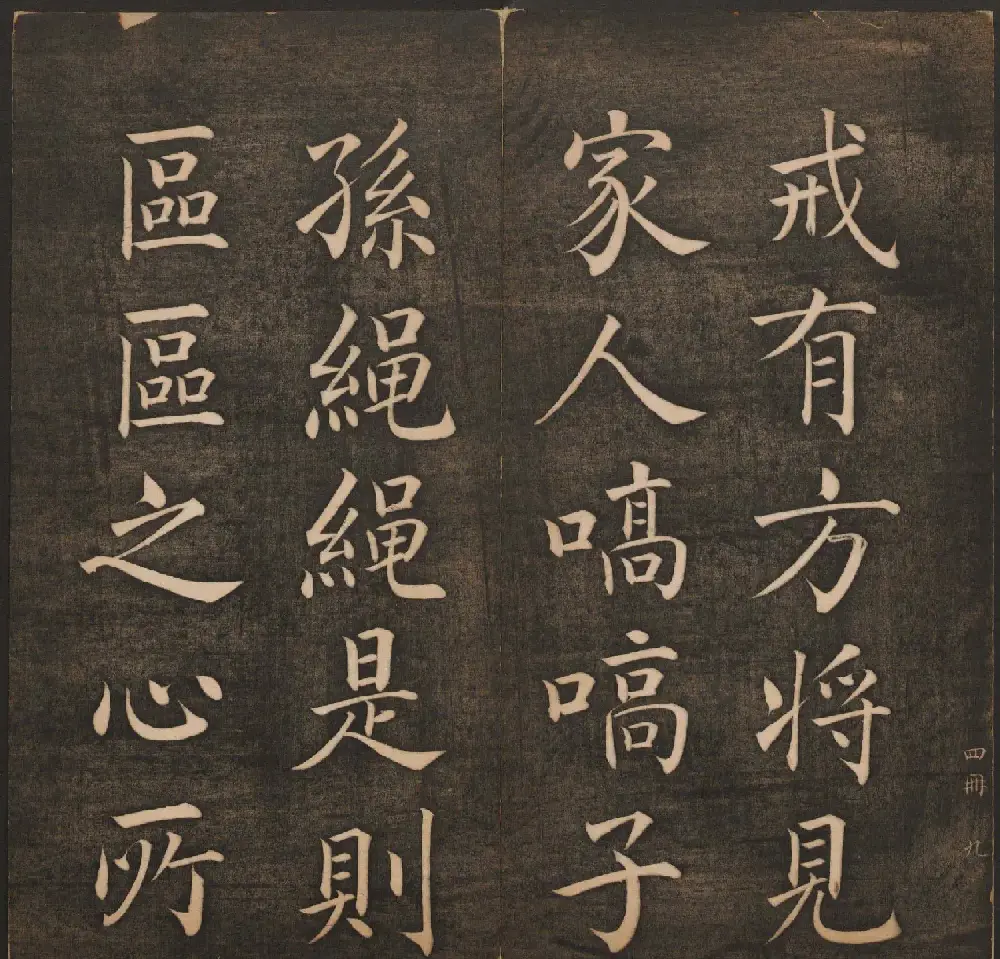 戒有方将見
家人嗃嗃子
孫繩繩是則
區區之心所
四冊 九